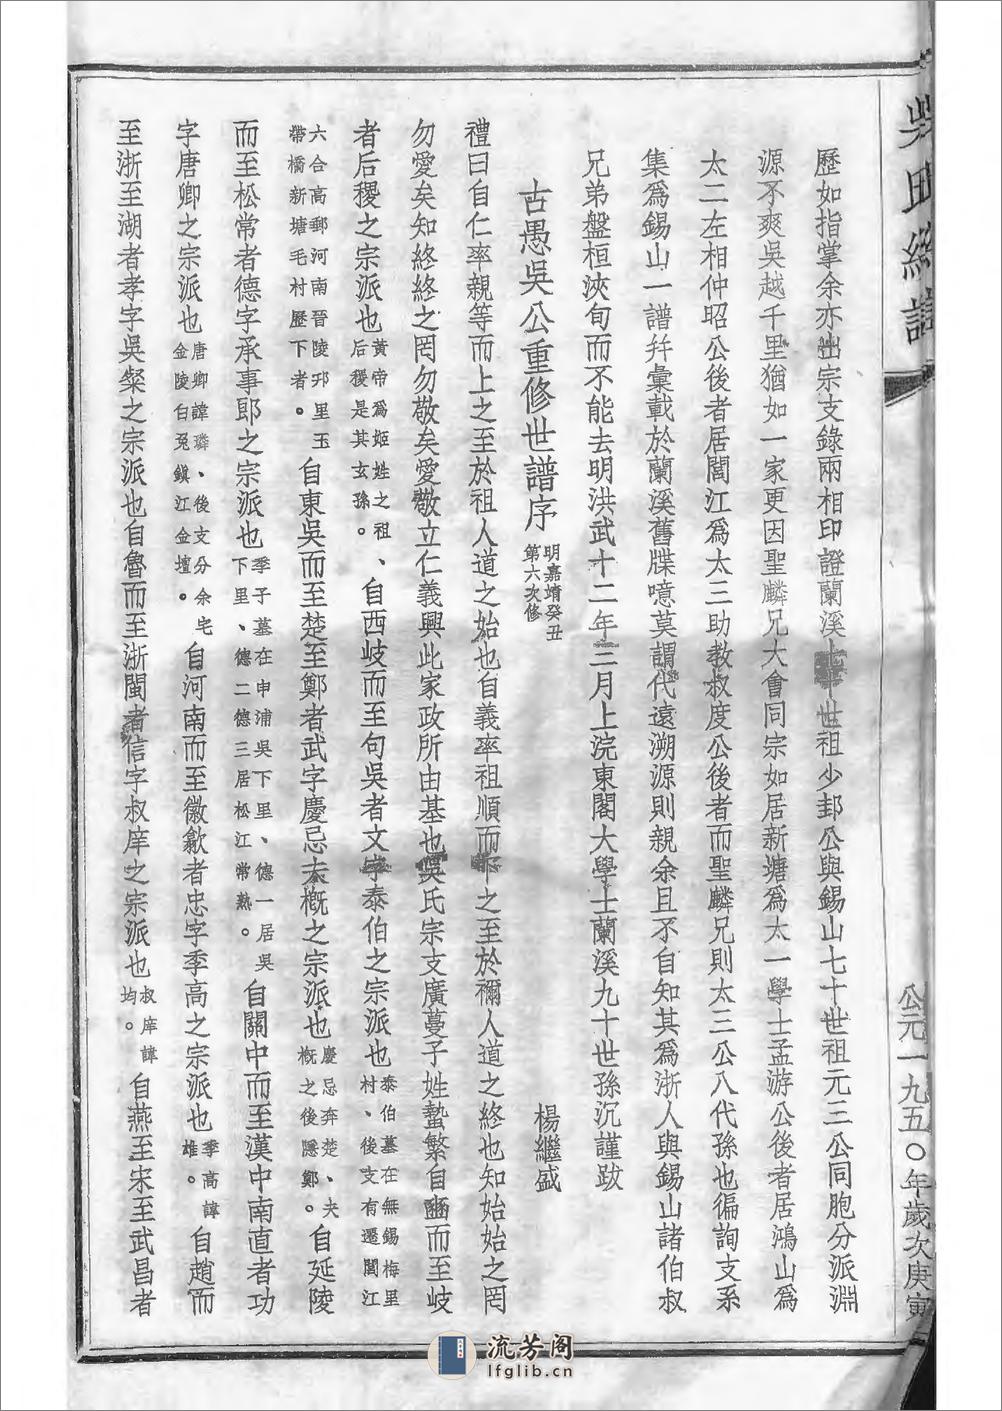 吳氏統譜
公元一九五〇年歲次庚寅
歷如指掌余亦出宗支錄兩相印證蘭溪七十世祖少邽公與錫山七十世祖元三公同胞分派淵
源不爽吳越千里猶如一家更因聖麟兄大會同宗如居新塘爲太一學士孟游公後者居鴻山爲
太二左相仲昭公後者居閶江爲太三助教叔度公後者而聖麟兄則太三公八代孫也徧詢支系
集爲錫山一譜幷彙載於蘭溪舊牒噫莫謂代遠溯源則親余且不自知其爲浙人與錫山諸伯叔
兄弟盤桓浹旬而不能去明洪武十二年三月上浣東閣大學士蘭溪九十世孫沉謹跋
古愚吳公重修世譜序 明嘉靖癸丑第六次修 楊繼盛
禮曰自仁率親等而上之至於祖人道之始也自義率祖順而下之至於禰人道之終也知始始之罔
勿愛矣知終終之罔勿敬矣愛敬立仁義興此家政所由基也吳氏宗支廣蔓子姓蟄繁自豳而至岐
者后稷之宗派也黃帝爲姬姓之祖、后稷是其玄孫。自西岐而至句吳者文字泰伯之宗派也泰伯墓在無錫梅里村、後支有遷閶江
六合高郵河南晉陵邛里玉帶橋新塘毛村歷下者。自東吳而至楚至鄭者武字慶忌夫概之宗派也慶忌奔楚、夫概之後隱鄭。自延陵
而至松常者德字承事郎之宗派也季子墓在申浦吳下里、德一居吳下里、德二德三居松江常熟。自關中而至漢中南直者功
字唐卿之宗派也唐卿諱璘、後支分余宅金陵白兎鎮江金壇。自河南而至徽歙者忠字季高之宗派也季高諱雄。自趙而
至浙至湖者孝字吳粲之宗派也自魯而至浙閩者信字叔庠之宗派也叔庠諱均。自燕至宋至武昌者
流芳阁
lfglib.cn